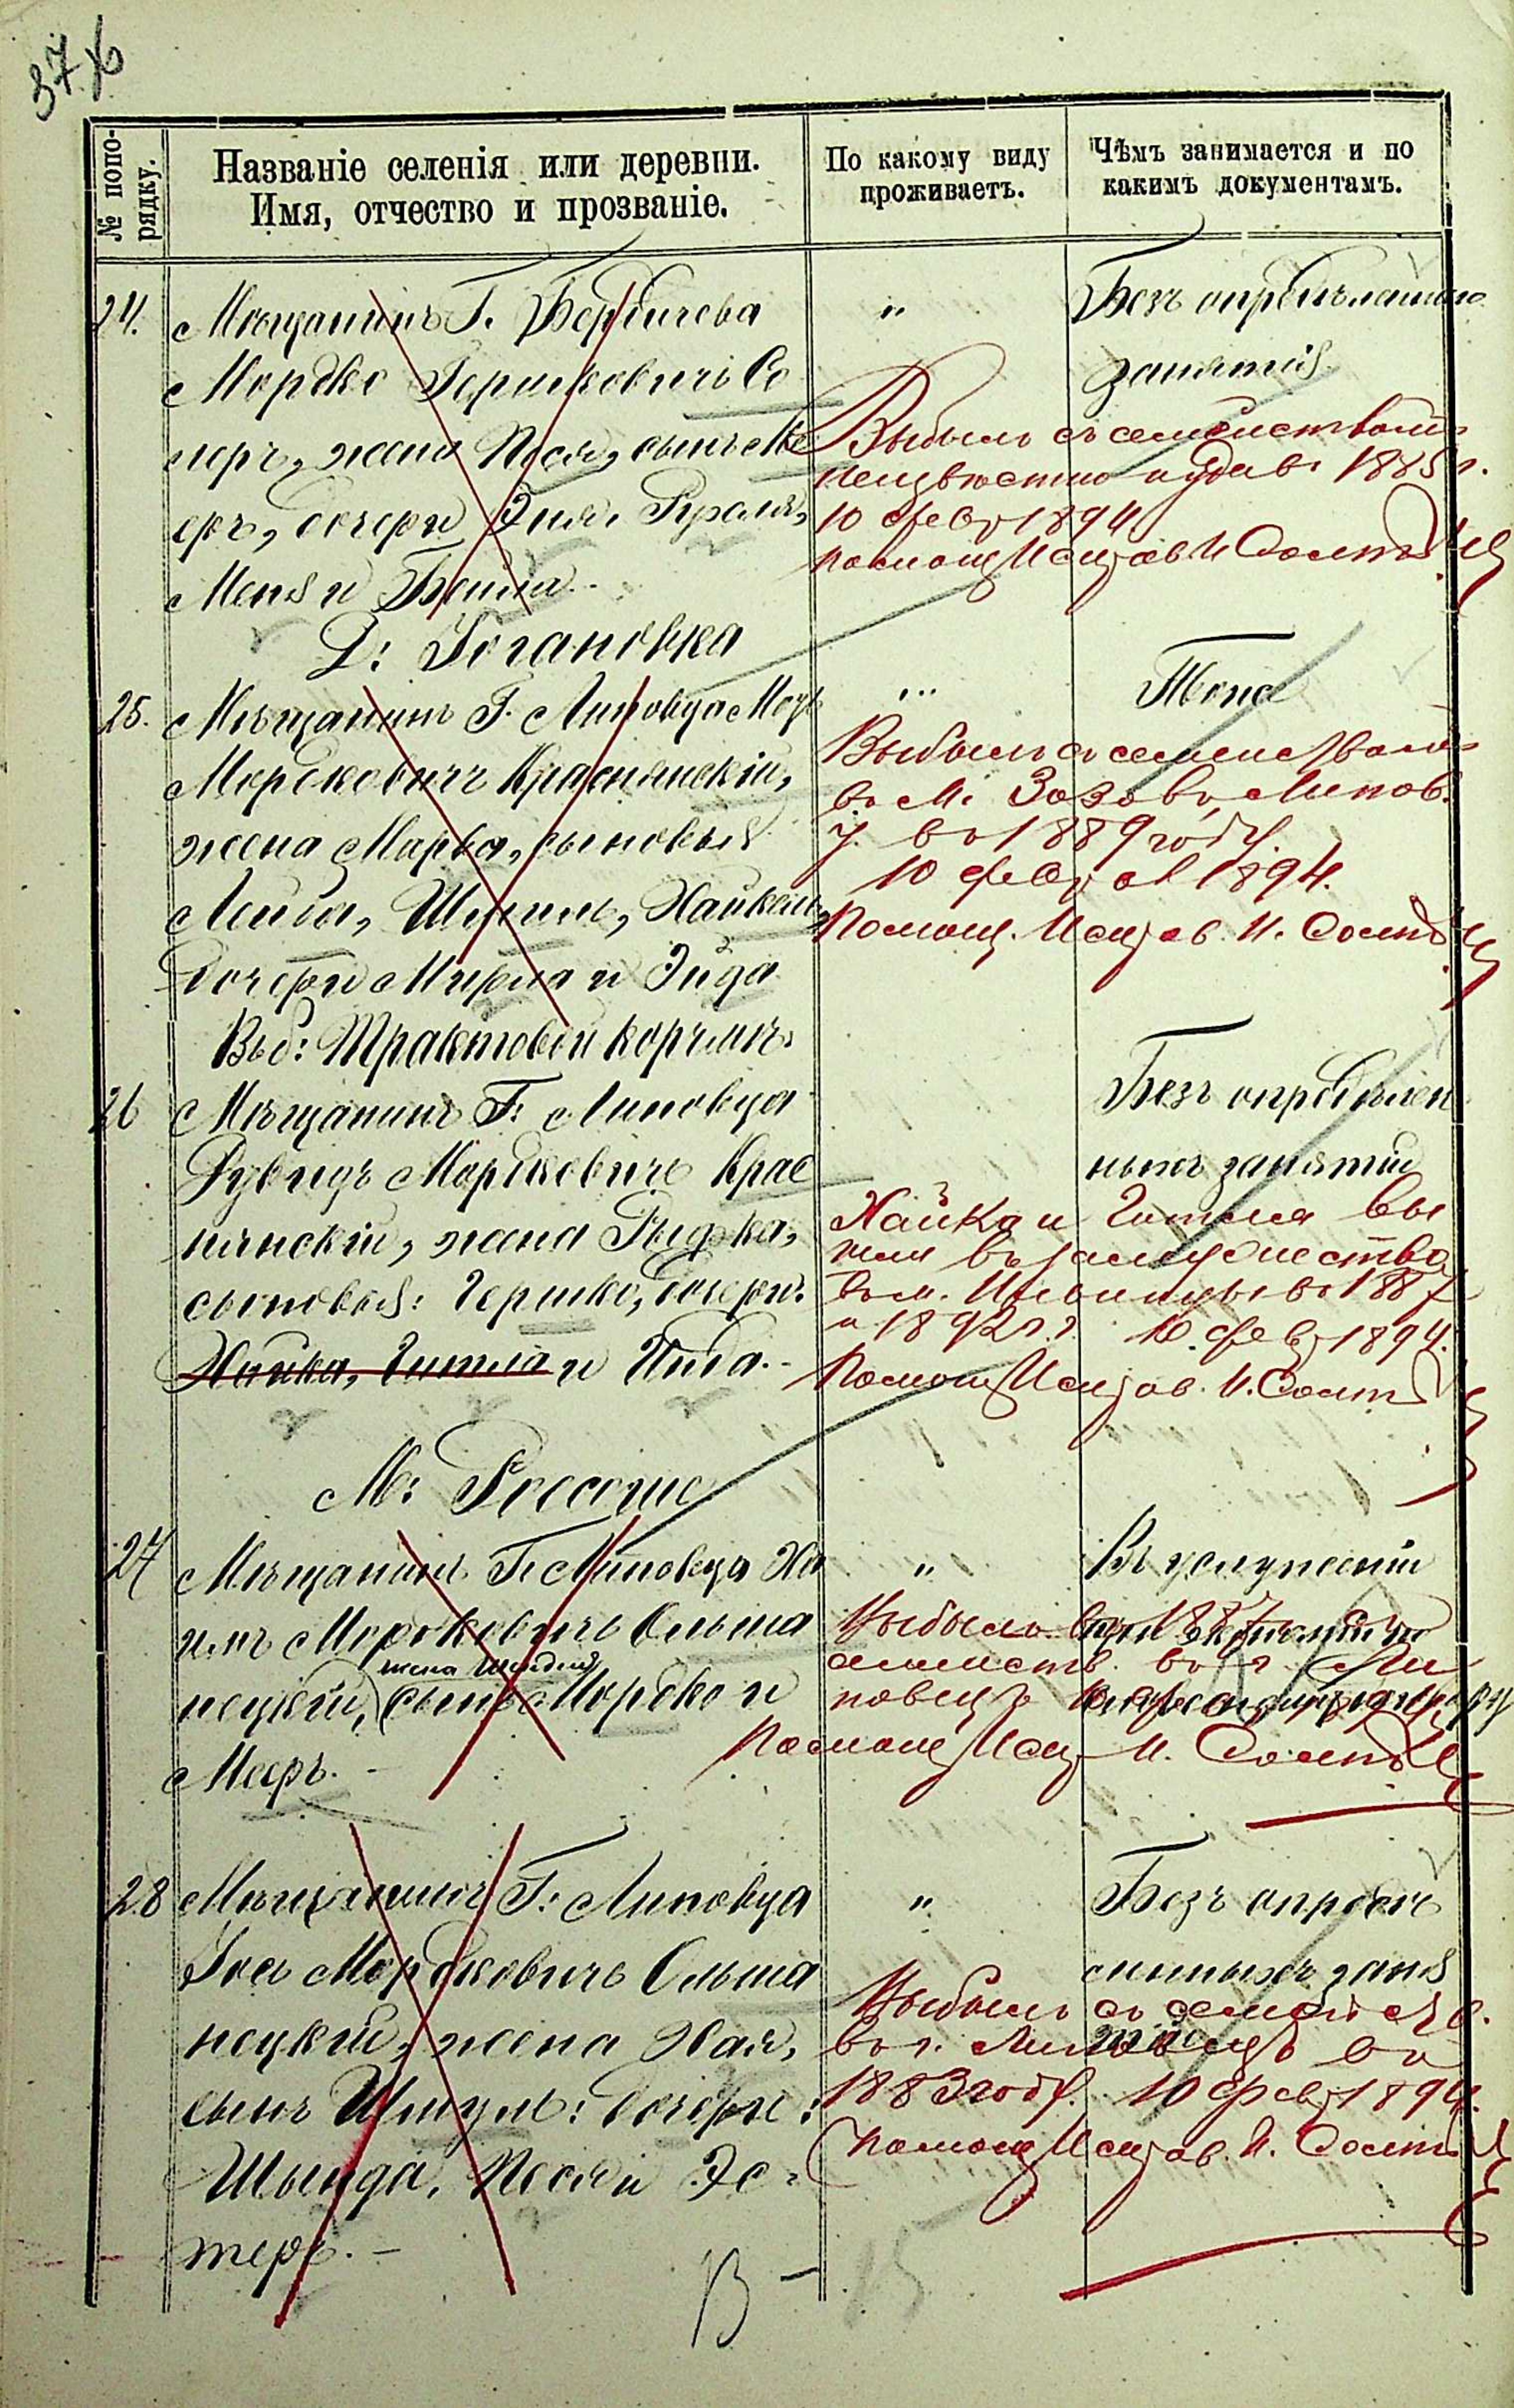 37
№ попо-
рядку.
Названіе селенія или деревни.
Имя, отчество и прозваніе.
По какому виду
проживаетъ.
Чѣмъ занимается и по
какимъ документамъ.
24.
Мѣщанинъ Г. Бердичева
Мордко Гершковичъ Со
меръ, жена Песя, сынъ Ме
еръ, дочери Эня, Рухля,
Меня и Бейла.
"
Безъ опредѣленнаго
занятія
Выбылъ съ семействомъ
неизвѣстно куда въ 1885 г.
10 февр 1894
Помощ Исправ И
Д: Богановка
25.
Мѣщанинъ Г. Липовца Мош
Мордковичъ Краснянскій,
жена Марья, сыновья
Лейба, Шмуль, Хайкель,
дочери Мирля и Эйда
"
Тоже
Выбылъ съ семействомъ
въ м. Зозовъ, Липов.
у. въ 1889 году.
10 февр 1894.
Помощ. Исправ. И.
Выс: Трактовой корчмы
26
Мѣщанинъ Г. Липовца
Мордковичъ Крас
нянскій, жена
сыновья: Гершко, дочери:
Хайка, Гитля и
Безъ опредѣлен
ныхъ занятій
Хайка и Гитля вы
шли въ замужество
въ м. Ильинцы въ 1887
и 1892 г.г. 10 февр 1894.
Помощ Исправ. И.
М: Россоше
27
Мѣщанинъ Г. Липовца Ха
имъ Мордковичъ Ольша
жена
нецкій, сынъ Мордко и
Мееръ.
"
Въ услуженіи
Выбылъ въ 1887
семейств. въ г. Ли
повецъ
Помощ Исп И.
28
Мѣщанинъ Г. Липовца
Іось Мордковичъ Ольша
нецкій, жена Хая,
сынъ Шмуль: дочери:
Шындя, Песя и Эс-
теръ.
"
Безъ опредѣ
ленныхъ заня
тій
Выбылъ съ семейств.
въ г. Липовецъ въ
1883 году. 10 февр 1894.
Помощ Исправ. И.
13
15